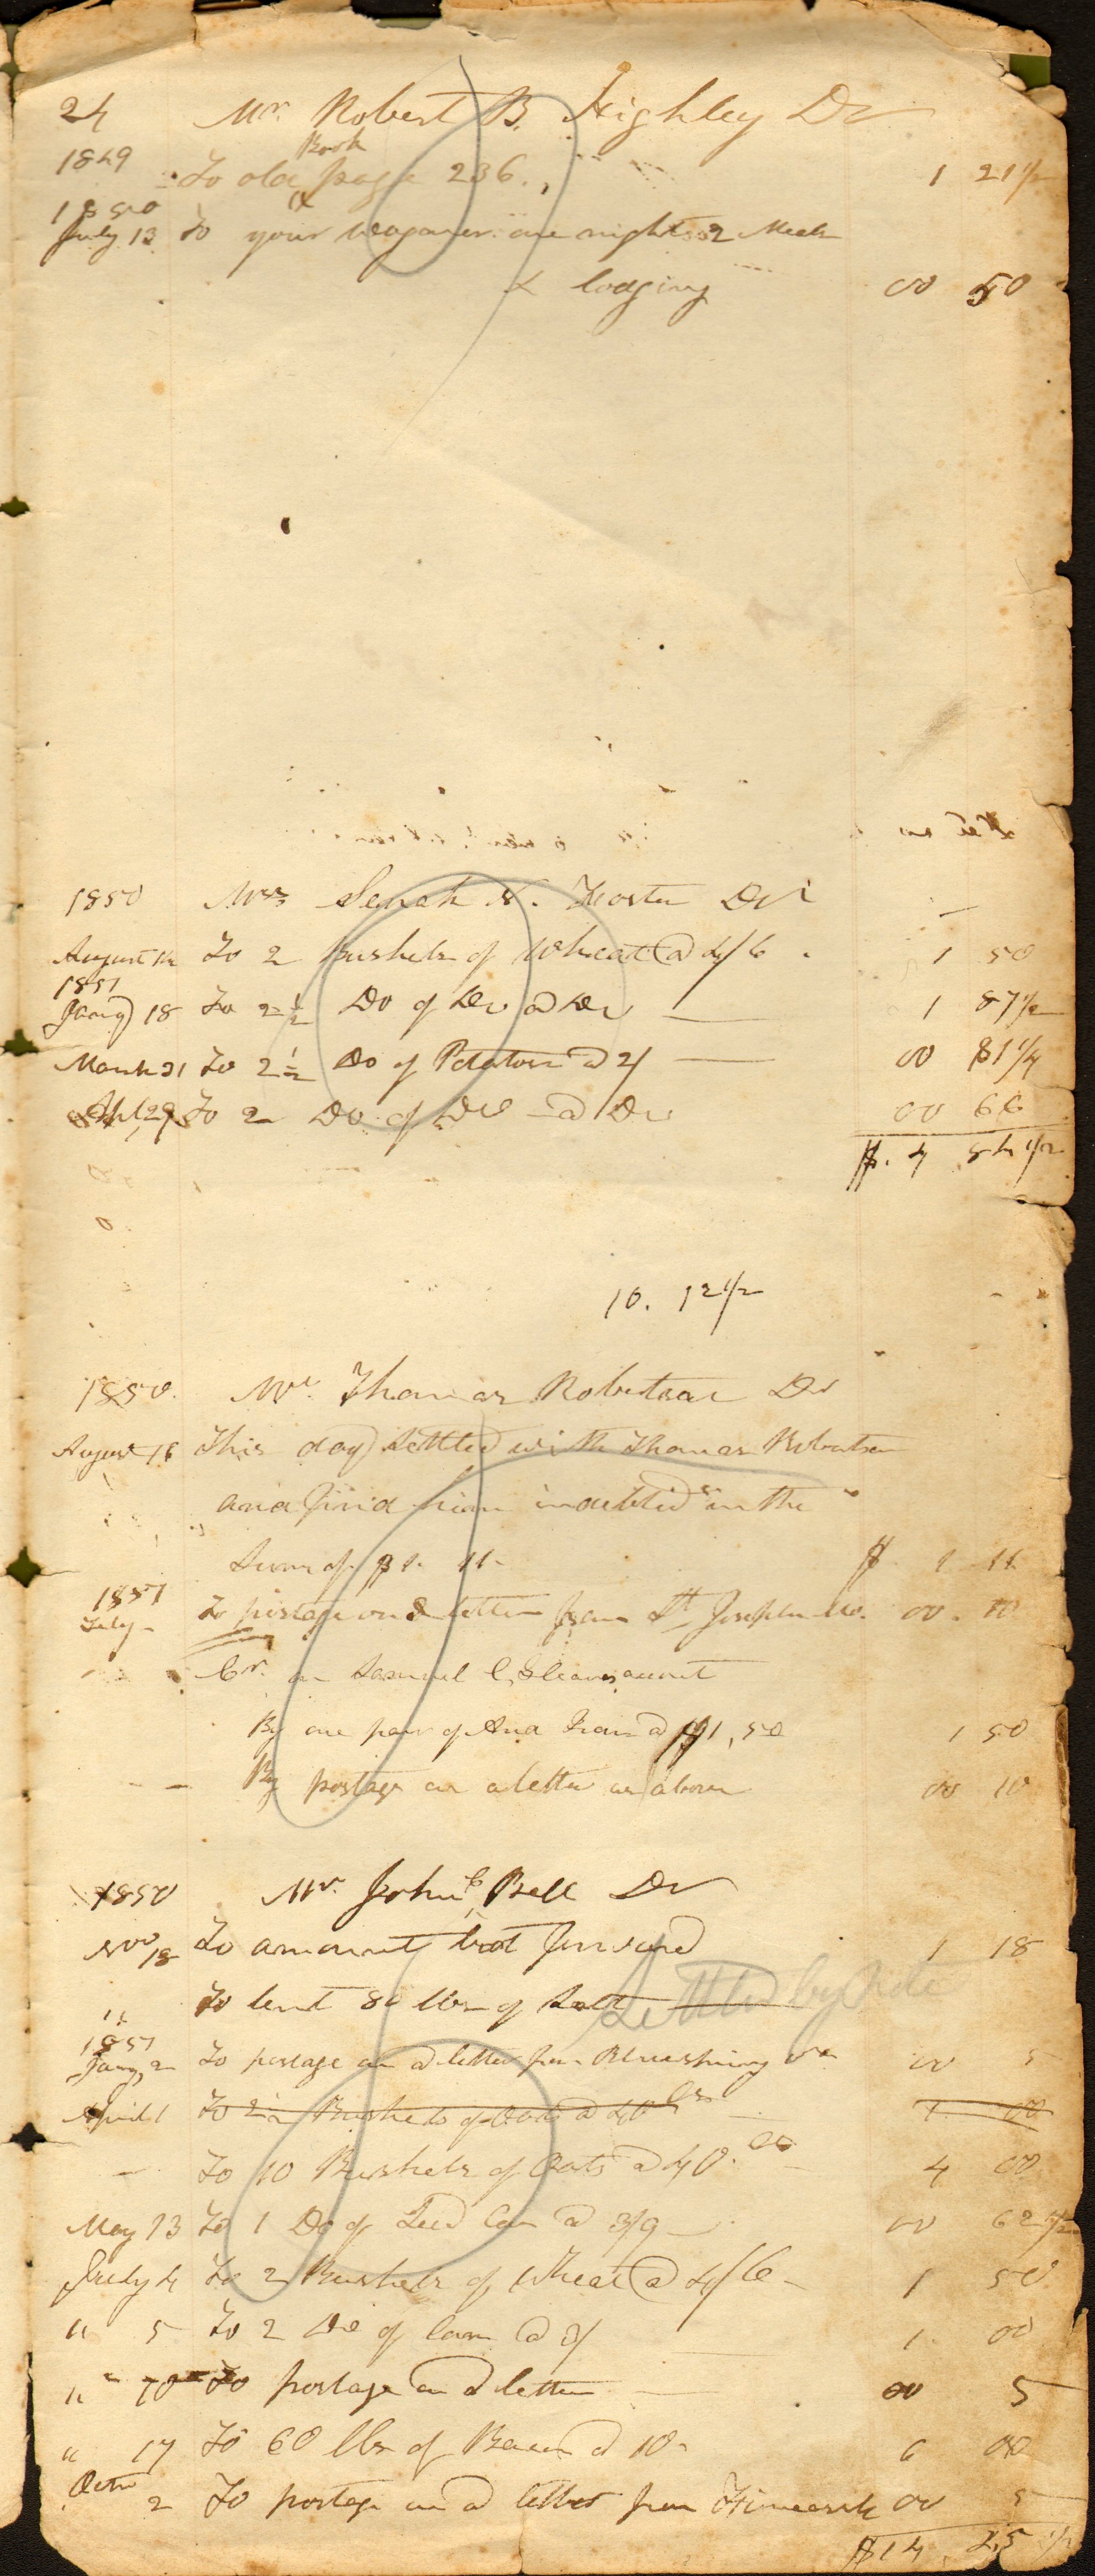 24 Mr. Robert B. Highley Dr
Book
1849 To old page 236. 1 21 1/2
1850
July 13 To your wagoner one night 2 Meels
& lodging 00 50
1850 Mrs Senah N. Foster Dr
August 14 To 2 Bushels of Wheat @ 4/6 1 50
1851
Jany 18 To 2 1/2 Do of Do @ Do 1 87 1/2
March 31 To 2 1/2 Do of Potatoes @ 2/ 00 81 1/4
Apl 29 To 2 Do of Do @ Do 00 66
$. 4 84 1/2
10. 12 1/2
1850. Mr. Thomas Robertson Dr
August 16 This day settled with Thomas Robertson
and find him indebted in the
Sum of $1. 11 $ 1 11
1851
July To postage on letter from St Joseph Mo. 00. 10
Cr. on Samuel C, Gleaves account
By one pair of And Irons @ $1,50 1 50
By postage on a letter as above 00 10
1850 Mr. John C Bell Dr
Nov 18 To amount brot forward 1 18
" To lent 80 lbs of Salt
Settled by Note
1851
Jany, 2 To postage on a letter from 00 5
April 1 To 2 1/2 Bushels of Oats @ 40 Cts 1 00
To 10 Bushels of Oats @ 40. cts 4 00
May 13 To 1 Do of Seed Corn @ 3/9 00 62 1/2
July 4 To 2 Bushels of Wheat @ 4/6 1 50
" 5 To 2 Do of Corn @ 3/ 1 00
" 10 To postage on a letter 00 5
" 17 To 60 lbs of Bacon @ 10 6 00
Octo 2 To postage on a letter from 00 5
$14 25 1/2